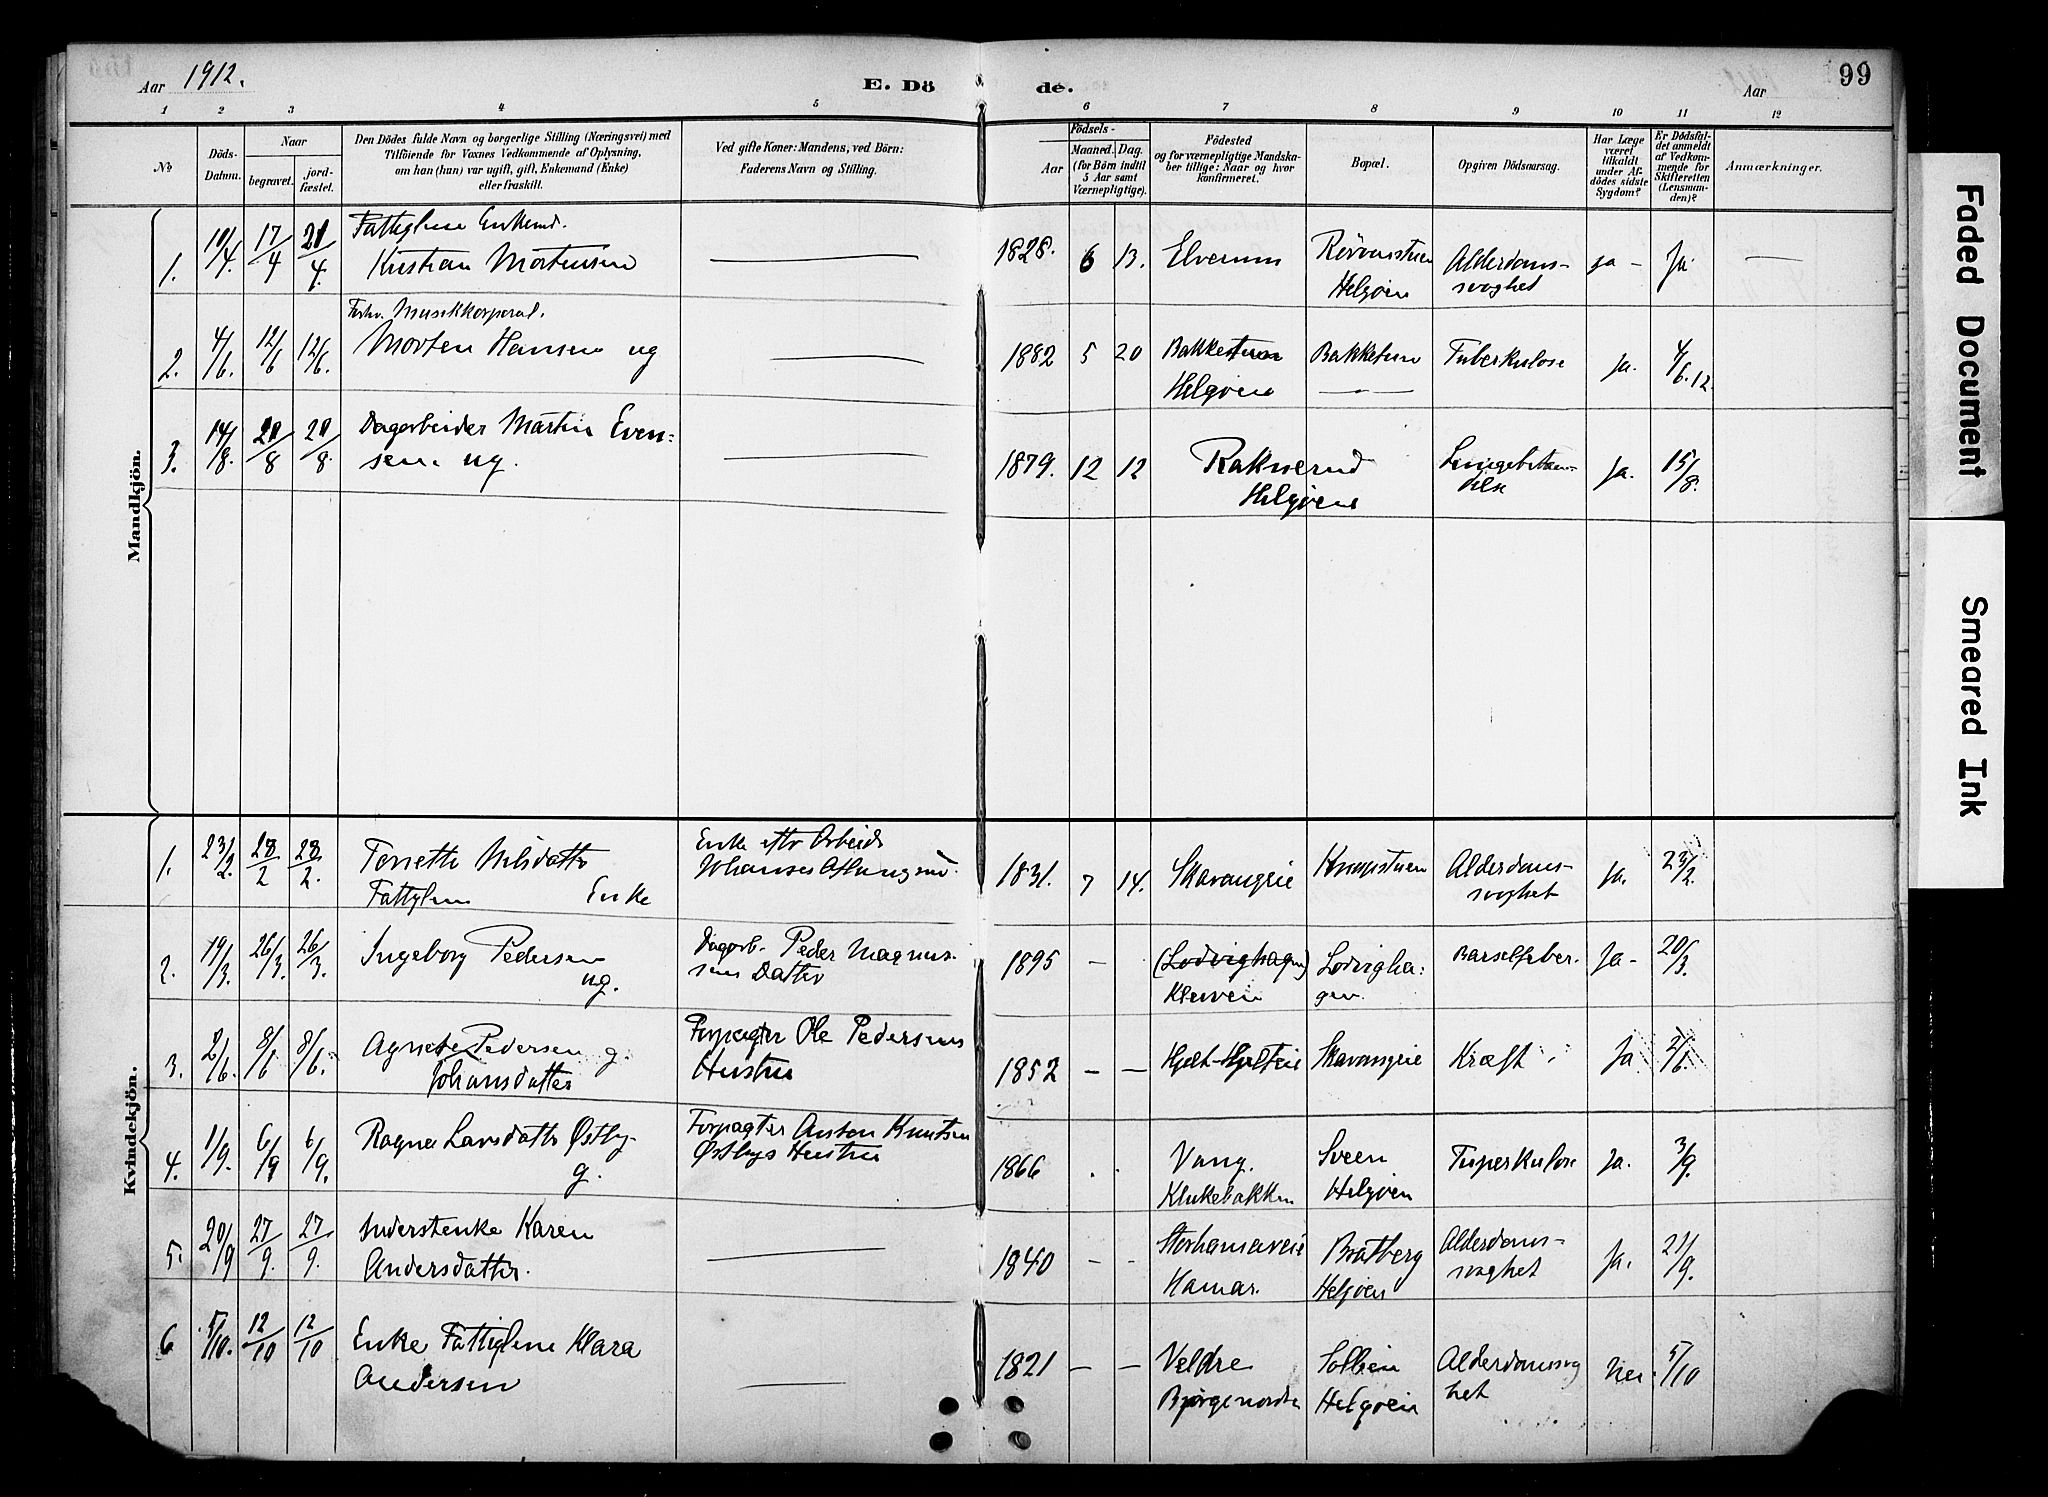 Aar 1912.
E. Dö
de.
Aar
99
1 2 3 4 5 6 7 8 9 10 11 12
No
Döds-
Datum.
Naar
begravet.
jord-
fæstet.
Den Dödes fulde Navn og borgerlige Stilling (Næringsvei) med
Tilföiende for Voxnes Vedkommende af Oplysning,
om han (hun) var ugift, gift, Enkemand (Enke)
eller fraskilt.
Ved gifte Koner: Mandens, ved Börn:
Faderens Navn og Stilling.
Födsels-
Aar
Maaned. Dag.
(for Börn indtil
5 Aar samt
Værnepligtige).
Födested
og for værnepligtige Mandska-
ber tillige: Naar og hvor
konfirmeret.
Bopæl.
Opgiven Dödsaarsag.
Har Læge
været
tilkaldt
under Af-
dödes sidste
Sygdom?
Er Dödsfal-
det anmeldt
af Vedkom-
mende for
Skifteretten
(Lensman-
den)?
Anmærkninger.
Mandkjön.
1. 10/4. 17/4 20/4.
Fattiglem Enkemd.
Kristian Mortensen
1828. 6 13. Elverum
Helgøen
Alderdoms-
svaghet
ja - Ja
2. 4/6. 12/6 12/6.
Forhv. Musikkorporal.
Morten Hansen ug
1882 5 20 Bakkestuen
Helgøen
Bakketun
Tuberkulose
Ja. 4/6.12.
3. 14/8. 20/8 20/8.
Dagarbeider Martin Even-
sen. ug.
1879. 12 12 Raknerud
Helgøen
Lungebetæn-
delse
Ja. 15/8.
Kvindekjön.
1. 23/2. 28/2 28/2.
Nilsdatter
Fattiglem Enke
Enke efter Arbeids
Johannes
1831. 7 14. Skavangeie
Alderdoms-
svaghet
Ja. 23/2.
2. 19/3. 26/3. 26/3.
Ingeborg Pedersen
ug.
Dagarb. Peder Magnus-
sens Datter
1895 - (Lodvighagen)
Lodvigha:
gen.
Barselfeber.
Ja- 20/3.
3. 2/6. 8/6 8/6.
Agnete Pedersen g.
Johansdatter
Forpagter Ole Pedersens
Hustru
1852 - - Skavangeie
Kræft
Ja 2/6.
4. 1/9. 6/9 6/9.
Ragna Larsdatter Østby.
g.
Forpagter Anton Knutsen
Østbys Hustru
1866 Vang.
Klukebakken
Sveen
Helgøen
Tuperkulose
Ja. 3/9.
5. 20/9 27/9. 27/9.
Inderstenke Karen
Andersdatter.
1840 - - Storhamareie
Hamar.
Bratberg
Helgøen
Alderdoms-
svaghet
Ja. 21/9.
6 5/10. 12/10 12/10
Enke Fattiglem Klara
Andersen
1821 - - Veldre
Bjørge nordre
Sollien
Helgøen
Alderdomssvag
het
Nei. 5/10
Faded Document
Smeared Ink